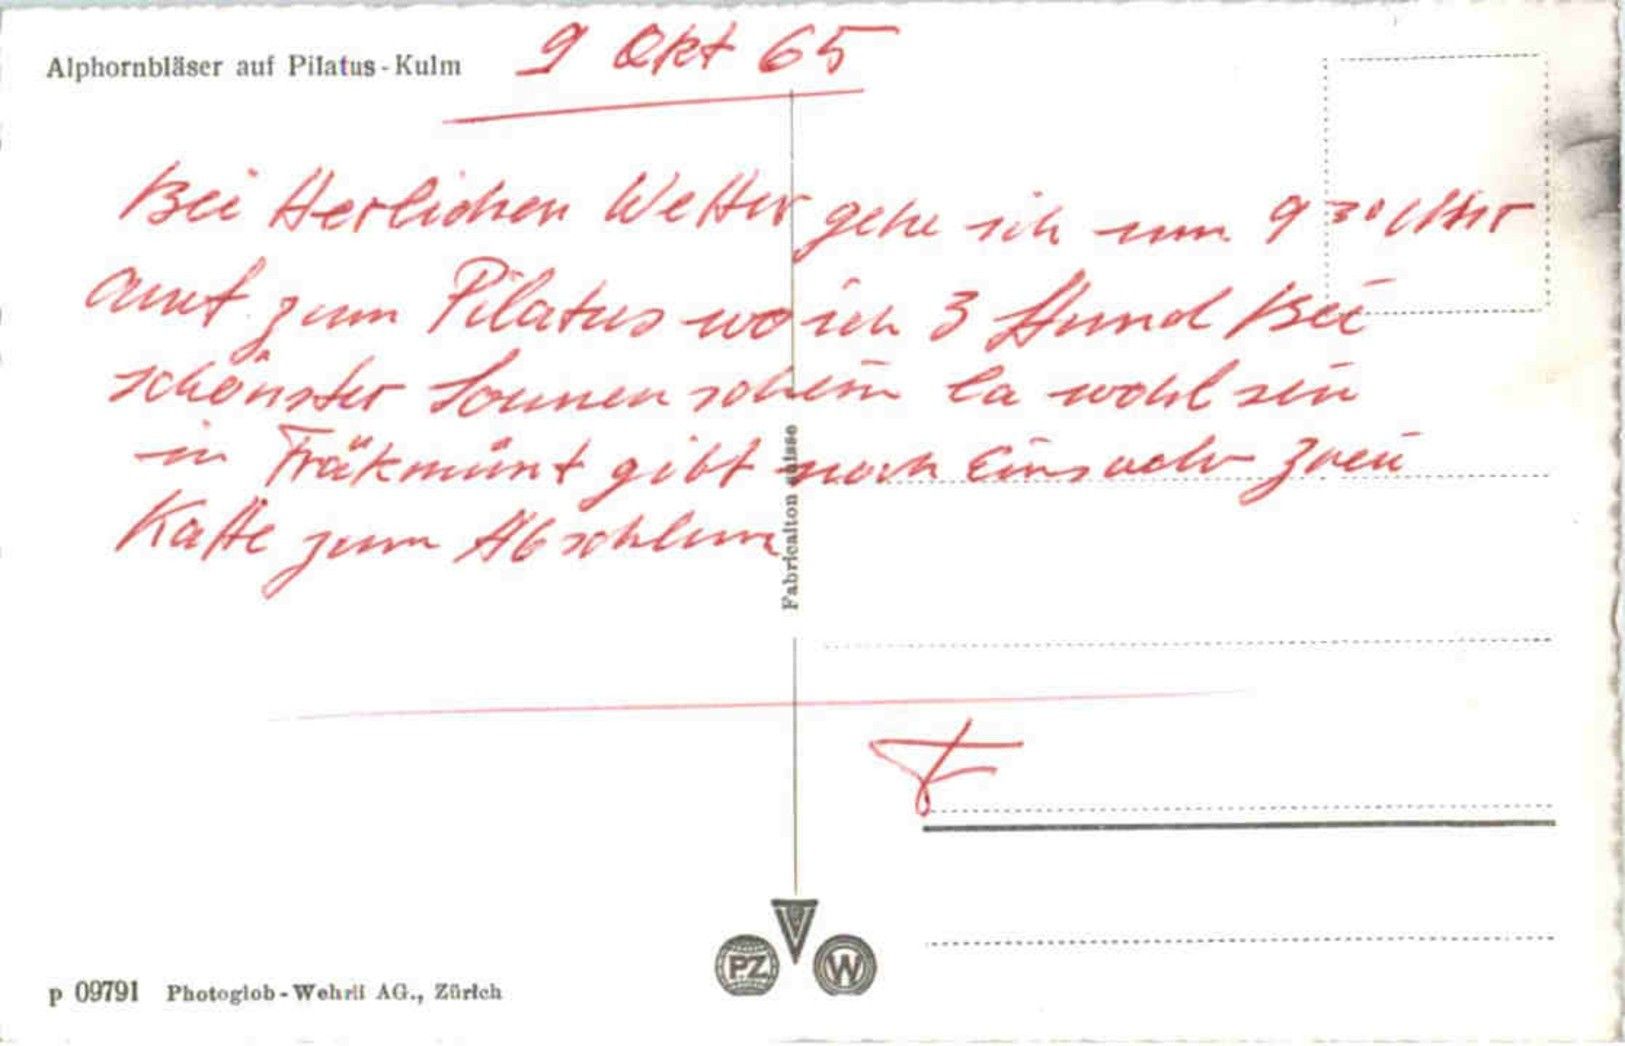 Alphornbläser auf Pilatus-Kulm
9 Okt 65
Bei Herlichen Wetter gehe ich um 9 30 Uhr
auf zum Pilatus wo ich 3 Stund Bei
schönster Sonnenschein la wohl sein
in Fräkmünt gibt noch Eins oder Zwei
Kaffe zum Abschluss
Fabrication suisse
F
PZ
W
p 09791 Photoglob-Wehrli AG., Zürich